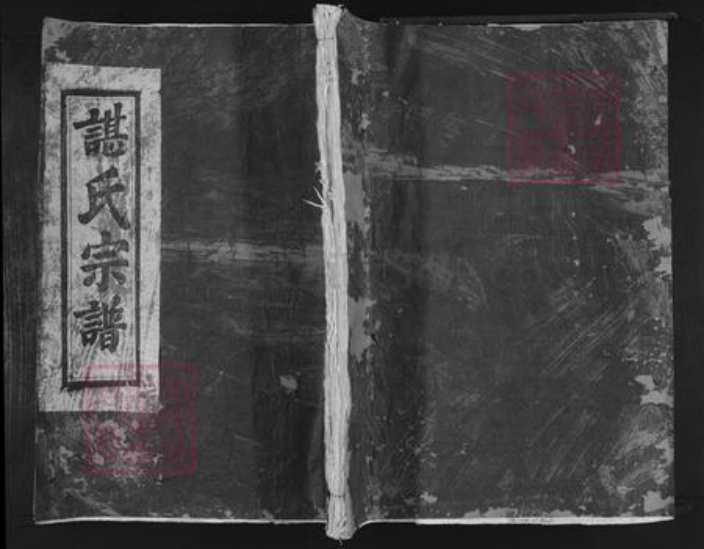 諶氏宗譜